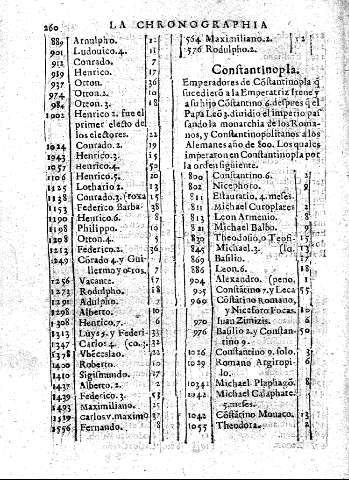 260 LA CHRONOGRAPHIA
889 Arnulpho. 12
901 Ludouico. 4. 11
912 Conrado. 7
919 Henrico. 17
937 Otton. 36
974 Otton. 2. 10
984 Otton. 3. 18
1002 Henrico 2. fue el
primer electo de
los electores. 22
1024 Conrado. 2. 19
1043 Henrico. 3. 15
1057 Henrico. 4. 50
1106 Henrico. 5. 20
1125 Lothario 2. 13
1138 Conrado. 3. (roxa 15
1153 Federico Barba- 38
1190 Henrico. 6. 8
1198 Philippo. 10
1208 Otton. 4. 5
1213 Federico. 2. 36
1249 Cõrado 4. y Gui-
llermo y otros. 7
1256 Vacante. 17
1273 Rodulpho. 18
1291 Adulpho. 7
1298 Alberto. 10
1308 Henrico. 7. 6
1313 Luys. y Federi- 33
1347 Carlos 4. (co. 32
1378 Vbẽceslao. 22
1400 Roberto. 10
1410 Sigismundo. 17
1437 Alberto. 2. 2
1439 Federico. 3. 53
1493 Maximiliano. 25
1519 Carlos v. maximo 37
1556 Fernando. 8
564 Maximiliano. 2. 12
576 Rodulpho. 2.
Constantinopla.
Emperadores de Cõstantinopla q̃
sucedierõ a la Emperatriz Irene y
a su hijo Cõstantino 6. despues q̃ el
Papa Leõ 3. diuidio el imperio pas
sando la monarchia de los Roma-
nos, y Constantinopolitanos a los
Alemanes año de 800. Los quales
imperaron en Cõstantinopla por
la orden siguiente.
800 Constantino 6.
802 Nicephoro. 9
811 Estauratio. 4. meses.
811 Michael Curoplates 2
813 Leon Armenio. 8
821 Michael Balbo. 9
830 Theodosio, o Teofi- 15
845 Michael. 3. (lo.
869 Basilio. 17
886 Leon. 6. 18
904 Alexandro. (peno. 1
905 Constãtino 7. y Leca 55
960 Cõstãtino Romano,
y Niceforo Focas. 10
970 Iuan Zimizis. 6
976 Basilio 2. y Constan- 50
tino 9.
1026 Constantino 9. solo. 3
1029 Romano Argiropi-
lo.
1034 Michael Plaphagõ. 8
1042 Michael Calaphate
5. meses.
1042 Cõstãtino Monaco. 13
1055 Theodora. 2